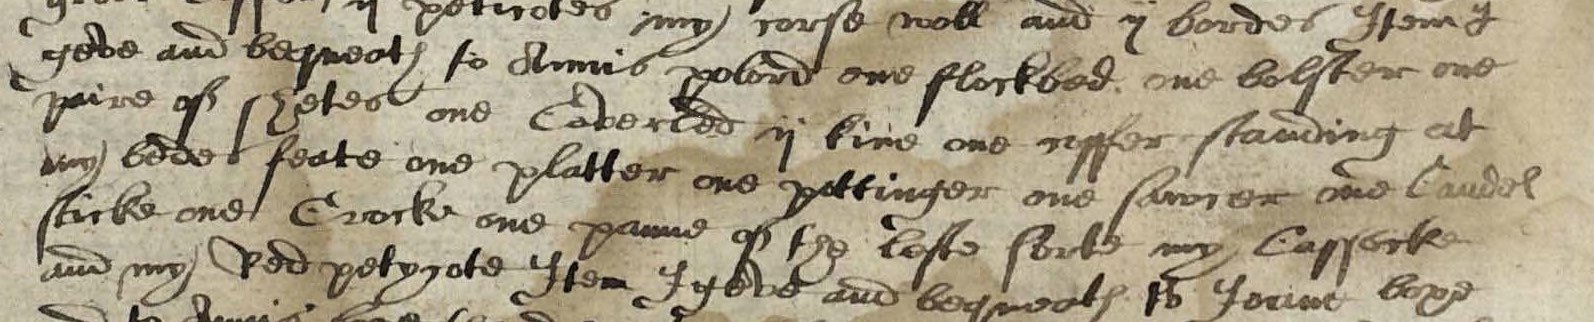 ij peticotes my corse woll and ij bordes Item I
geve and bequeath to Annis polord one flockbed one bolster one
paire of shetes one Coverled ij kine one coffer standing at
my beddes feate one platter one pottinger one sawcer one Candel
sticke one Crocke one panne of the leste sorte my Cassocke
and my Red petycote Item I geve and bequeath to Joane
to Annis